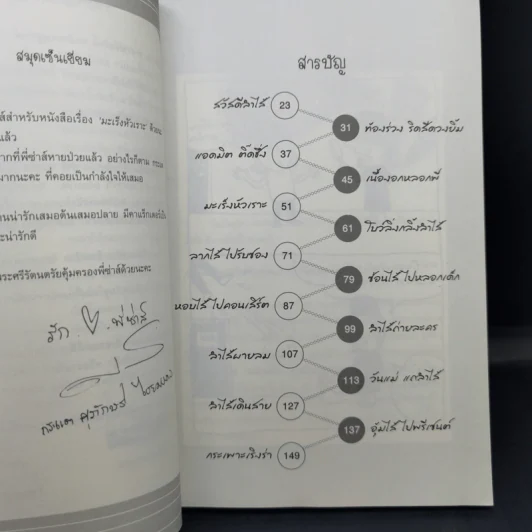 สมุดเซ็นเยี่ยม
ส์สำหรับหนังสือเรื่อง 'มะเร็งหัวเราะ'
แล้ว
ากที่พี่ซ่าส์หายป่วยแล้ว อย่างไรก็ตาม
มากนะคะ ที่คอยเป็นกำลังใจให้เสมอ
านน่ารักเสมอต้นเสมอปลาย มีคาแร็กเตอร์
ะน่ารักดี
ระศรีรัตนตรัยคุ้มครองพี่ซ่าส์ด้วยนะคะ
รัก พี่ซ่าส์
สารบัญ
สวัสดีลำไส้ 23
31 ท้องร่วง ริดสีดวงยิ้ม
แอดมิต ติ๊ดชึ่ง 37
45 เนื้องอกหลอกพี่
มะเร็งหัวเราะ 51
61 โบว์ลิ่งกลิ้งลำไส้
ลากไส้ ไปรับซอง 71
79 ซ่อนไส้ ไปหลอกเด็ก
หอบไส้ ไปคอนเสิร์ต 87
99 ลำไส้ถ่ายละคร
ลำไส้ผายลม 107
113 วันแม่ แฉลำไส้
ลำไส้เดินสาย 127
137 อุ้มไส้ ไปพรีเซ็นต์
กระเพาะเริงร่า 149